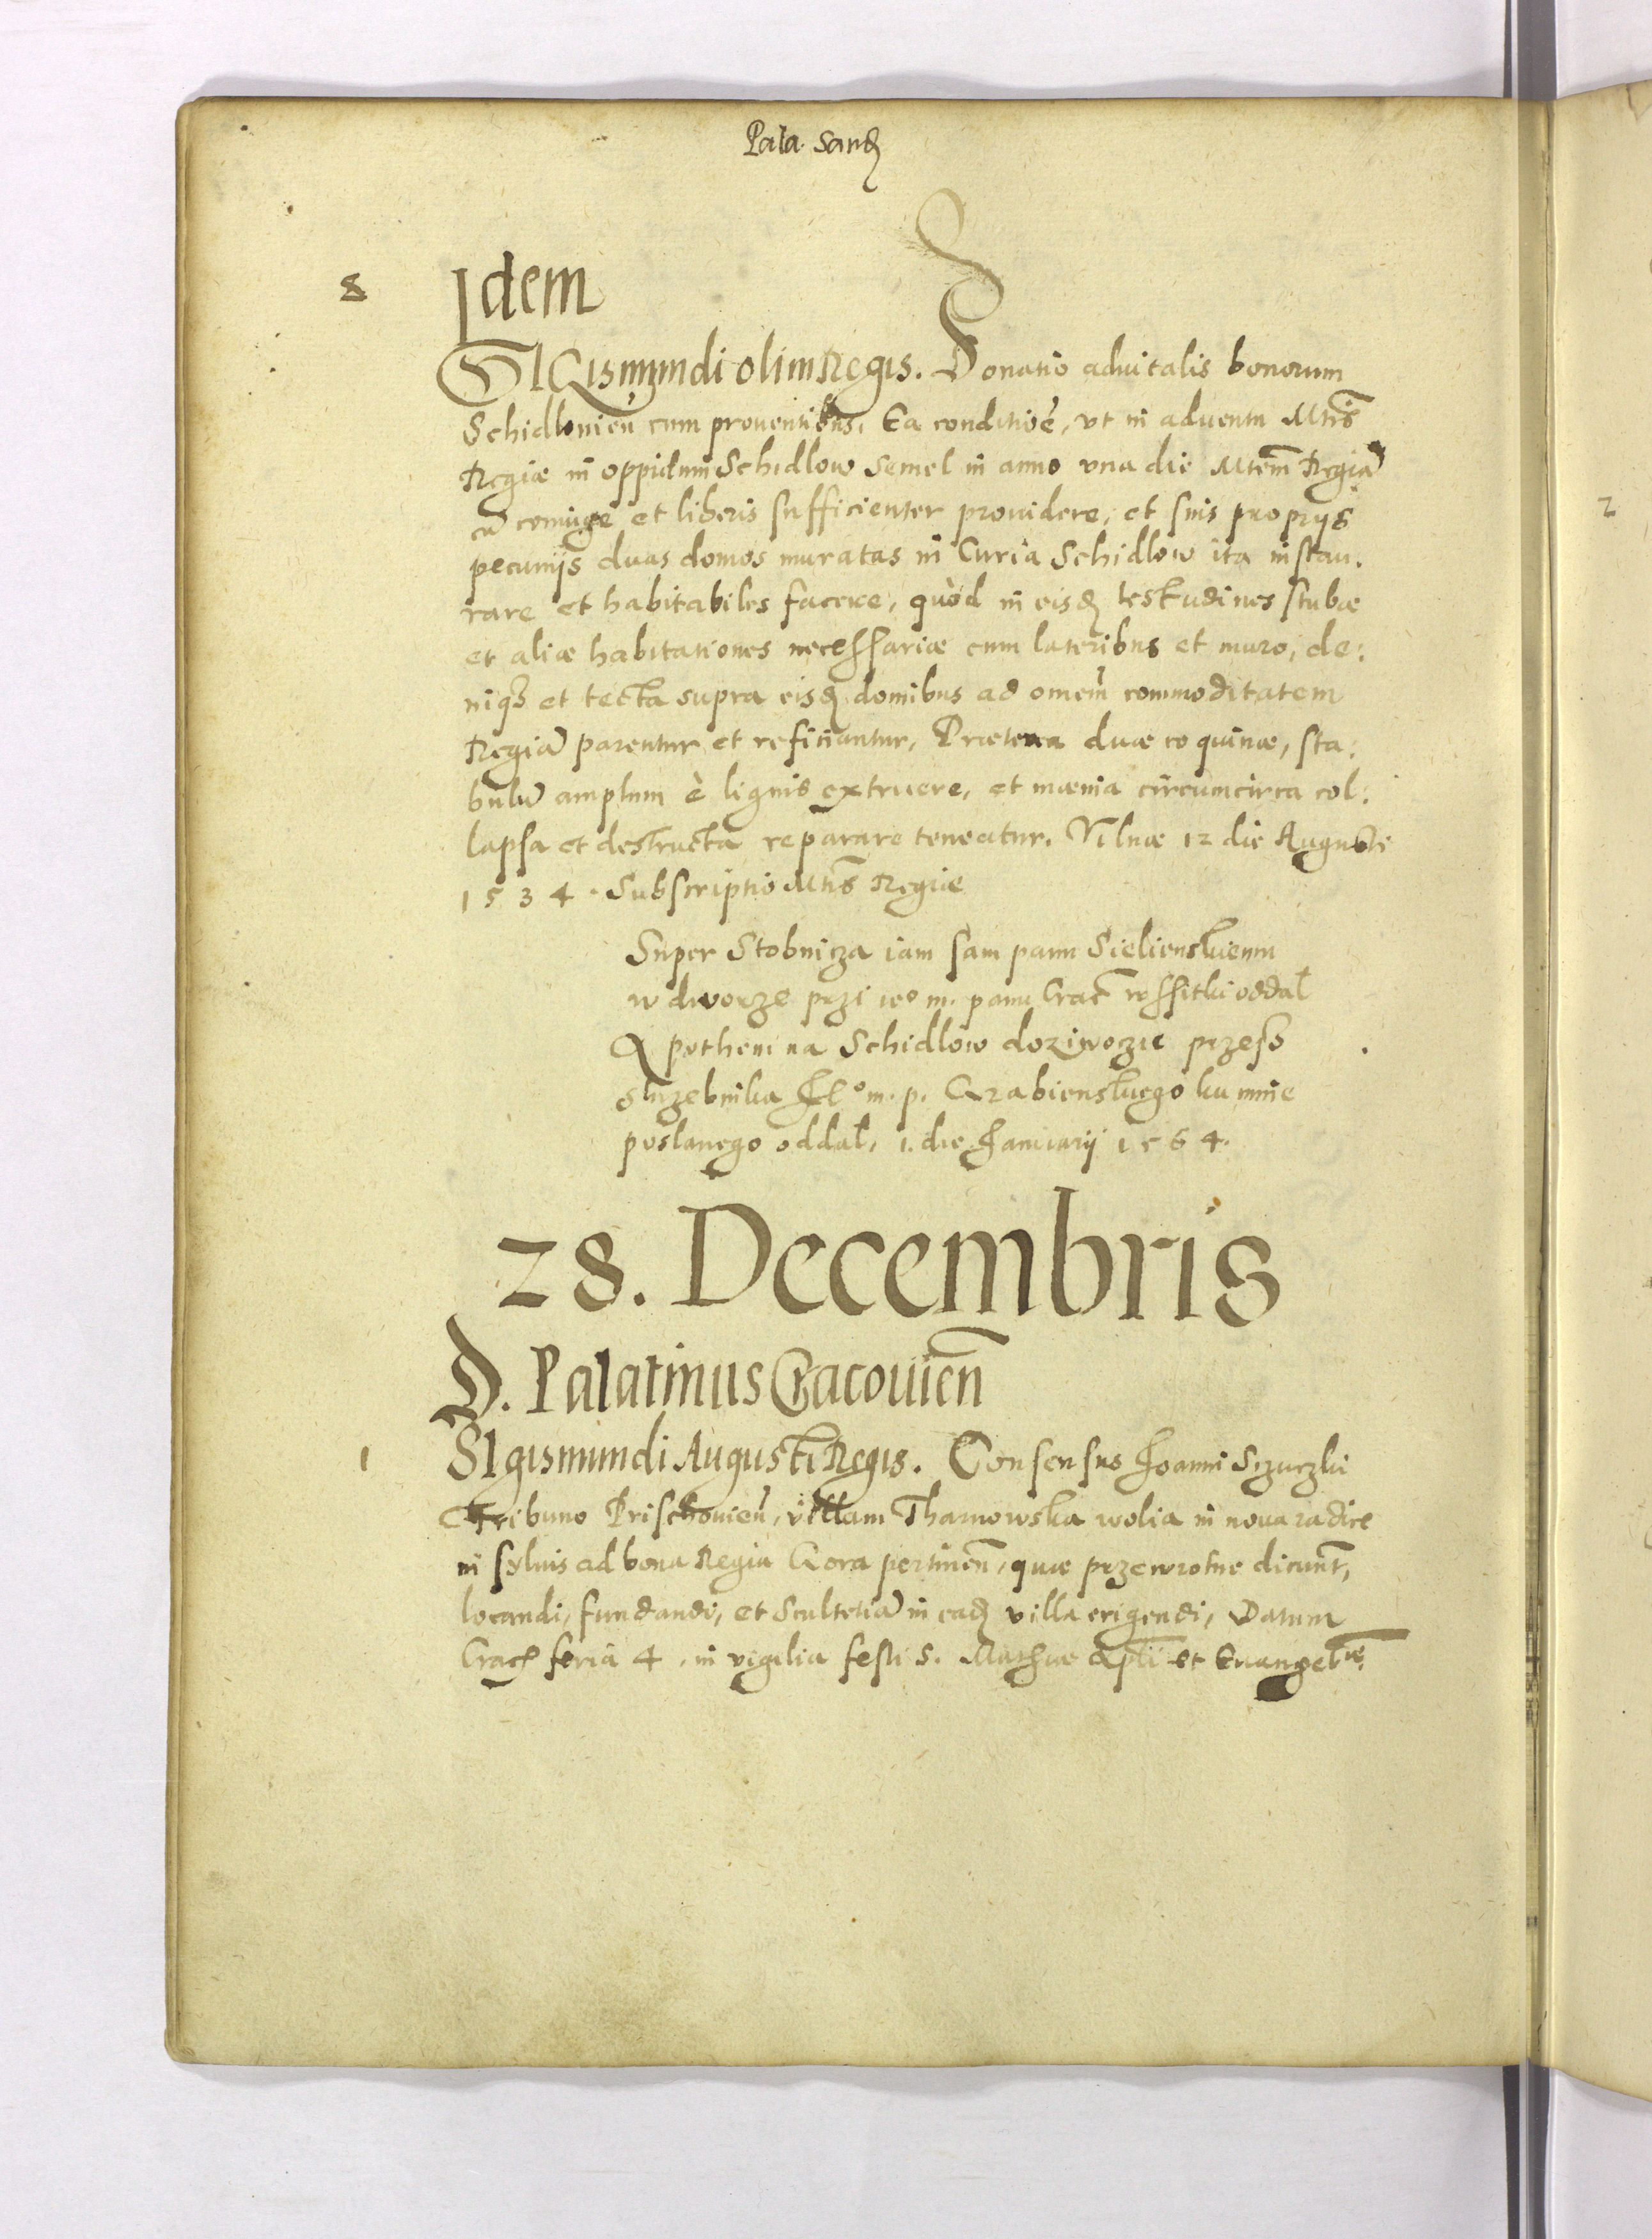 Pala. Sand
8 Idem
SIGismundi olim Regis. Donatio aduitalis bonorum
Schidlouien̄ cum prouentibus. Ea conditiōe, vt in aduentu Mtis̄
Regiæ in oppidum Schidlow semel in anno vna die Mtem̄ Regiā
cū coniuge et liberis sufficienter prouidere, et suis proprijs
pecunijs duas domos muratas in Curia Schidlow ita instau:
rare et habitabiles facere, quòd in eisd testudines stubæ
et aliæ habitationes necessariæ cum lateribus et muro, de:
niq et tecta supra eisd domibus ad omem̄ commoditatem
Regiā parentur et reficiantur, Præterea duæ coquinæ, sta:
bulū amplum è lignis extruere, et mænia circumcirca col:
lapsa et destructa reparare teneatur. Vilnæ 12 die Augusti
1534. Subscriptio Mtis̄ Regiæ
Super Stobnicza iam sam panu Sielienskiemu
w dworze przi ieo m. panu Crac̄ wssitki oddał
A pothem na Schidlow doziwoczie przess
sluzebnika Ieo m. p. Grabienskiego ku mnie
poslanego oddal, 1. die Januarij 1564.
28. Decembris
D. Palatinus Cracouien̄
1 SIgismundi Augusti Regis. Consensus Joanni Sczuczki
Tribuno Prischouien̄, villam Tharnowska wolia in noua radice
in syluis ad bona Regia Gora pertinen̄, quæ przewrotne dicunt,
locandi, fundandi, et Scultetiā in ead villa erigendi, Datum
Crac feria 4, in vigilia festi S. Mathæi Apli̅ et Euangeliæ.
2